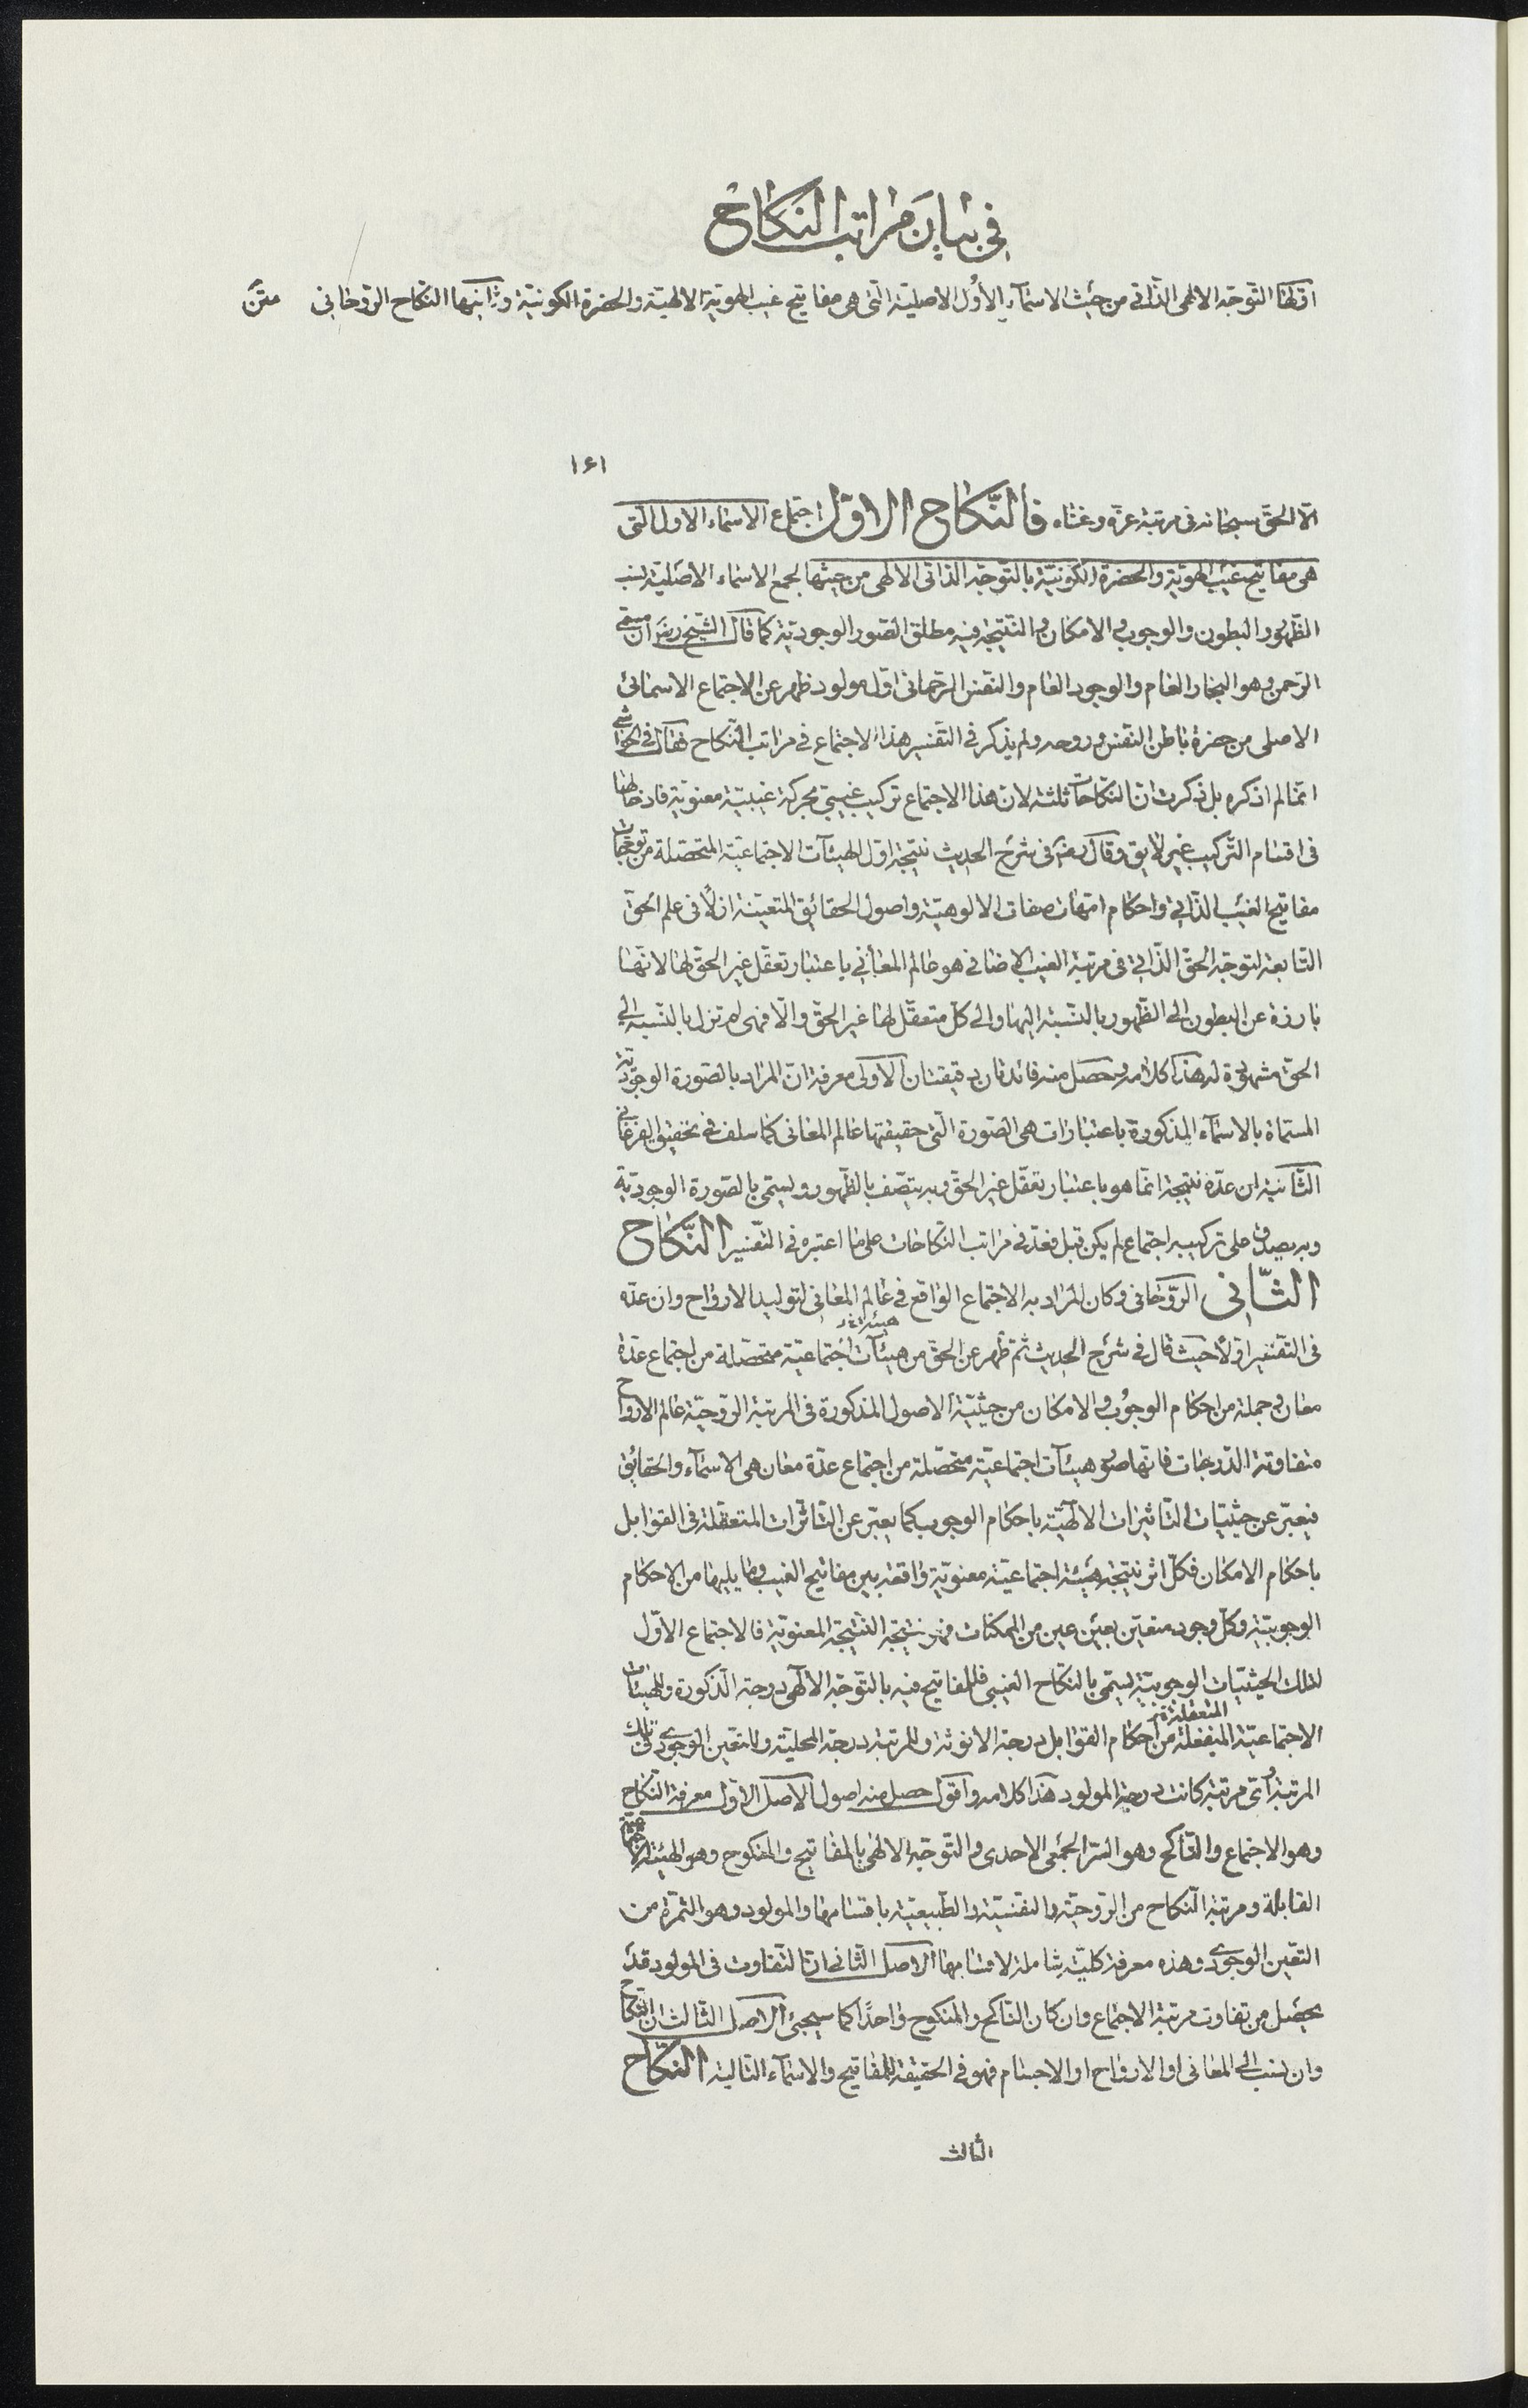 في بيان مراتب النكاح
اولها التوجه الالهى الذاتى من حيث الاسماء الأول الاصلية التى هى مفاتيح غيب الهوية الالهية والحضرة الكونية وثانيها النكاح الروحانى متن
١٦١
الّا الحق سبحانه فى مرتبة عزه وغناه فالنّكاح الاوّل اجتماع الاسماء الاول التى
هى مفاتيح غيب الهوية والحضرة الكونيّة بالتوجّه الذاتى الالهى من حيثها لجمع الاسماء الاصليّة بنسب
الظهور والبطون والوجوب والامكان والنتيجة فيه مطلق الصور الوجوديّة كما قال الشيخ رضه ان مسمّى
الرحمن وهو البخار العام والوجود العام والنفس الرحمانى اوّل مولود ظهر عن الاجتماع الاسمائى
الاصلى من حضرة باطن النفس وروحه ولم يذكر فى التفسير هذا الاجتماع فى مراتب النّكاح فقال فى الحواشى
انّما لم اذكره بل ذكرت انّ النكاحات ثلثة لان هذا الاجتماع تركيب غيبىّ بحركة غيبيّة معنويّة فادخالها
فى اقسام التّركيب غير لايق وقال رضه فى شرح الحديث نتيجة اوّل الهيئآت الاجتماعيّة المتحصّلة من توجّهات
مفاتيح الغيب الذاتى واحكام امّهات صفات الالوهيّة واصول الحقائق المتعيّنة ازلاً فى علم الحقّ
التّابعة لتوجّه الحقّ الذّاتى فى مرتبة الغيب الاضافى هو عالم المعانى باعتبار تعقّل غير الحقّ لها لانّها
بارزة عن البطون الى الظّهور بالنّسبة اليها والى كلّ متعقّل لها غير الحقّ والّا فهى لم تزل بالنسبة الى
الحق مشهودة له هذا كلامه وحصل منه فائدتان دقيقتان الاولى معرفة انّ المراد بالصّورة الوجوديّة
المسمّاة بالاسمآء المذكورة باعتبارات هى الصّورة التّى حقيقتها عالم المعانى كما سلف فى تحقيق الفرغانى
الثّانية ان عدّه نتيجة انّما هو باعتبار تعقّل غير الحقّ وبه يتّصف بالظّهور ويسمّى بالصّورة الوجوديّة
وبه يصدق على تركيبه اجتماع لم يكن قبل فعدّ فى مراتب النّكاحات على ما اعتبره فى التّفسير النّكاح
الثّانى الرّوحانى وكان المراد به الاجتماع الواقع فى عالم المعانى لتوليد الارواح وان عدّه
فى التّفسير اوّلاً حيث قال فى شرح الحديث ثمّ ظهر عن الحقّ من هيئآت اجتماعيّة متحصّلة من اجتماع عدّة
معان وجملة من احكام الوجوب والامكان من حيثيّة الاصول المذكورة فى المرتبة الرّوحيّة عالم الارواح
متفاوتة الدّرجات فانّها صور هيئآت اجتماعيّة متحصّلة من اجتماع عدّة معان هى الاسمآء والحقائق
فيعبّر عن حيثيّات التّاثيرات الالهيّة باحكام الوجوب كما يعبّر عن التّاثّرات المتعقّلة فى القوابل
باحكام الامكان فكلّ اثر نتيجة هيئة اجتماعيّة معنويّة واقعة بين مفاتيح الغيب وما يليها من الاحكام
الوجوبيّة وكلّ وجود متعيّن بعين عين من الممكنات فهو نتيجة النّتيجة المعنويّة فالاجتماع الاوّل
لتلك الحيثيّات الوجوبيّة يسمّى بالنكاح الغيبى فللمفاتيح فيه بالتوجّه الالهى درجة الذّكورة وللهيئات
الاجتماعيّة المنفعلة من احكام القوابل درجة الانوثة وللمرتبة درجة المحليّة وللتعيّن الوجودى فى تلك
المرتبة أىّ مرتبة كانت درجة المولود هذا كلامه واقول حصل منه اصول الاصل الاوّل معرفة النّكاح
وهو الاجتماع والنّاكح وهو السّر الجمعى الاحدى والتّوجّه الالهى بالمفاتيح والمنكوح وهو الهيئة الاجتماعيّة
القابلة ومرتبة النّكاح من الرّوحيّة والنفسيّة والطّبيعيّة باقسامها والمولود وهو الثمرة من
التعّين الوجودى وهذه معرفة كليّة شاملة لاقسامها الاصل الثّانى انّ التّفاوت فى المولود قد
يحصل من تفاوت مرتبة الاجتماع وان كان النّاكح والمنكوح واحدًا كما سيجئ الاصل الثّالث ان النّكاح
وان نسب الى المعانى او الارواح او الاجسام فهو فى الحقيقة للمفاتيح والاسمآء التّالية النكّاح
الثالث